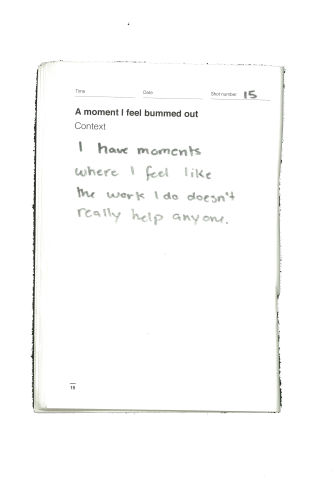 Time Date Shot number 15
A moment I feel bummed out
Context
I have moments
where I feel like
the work I do doesn't
really help anyone.
19